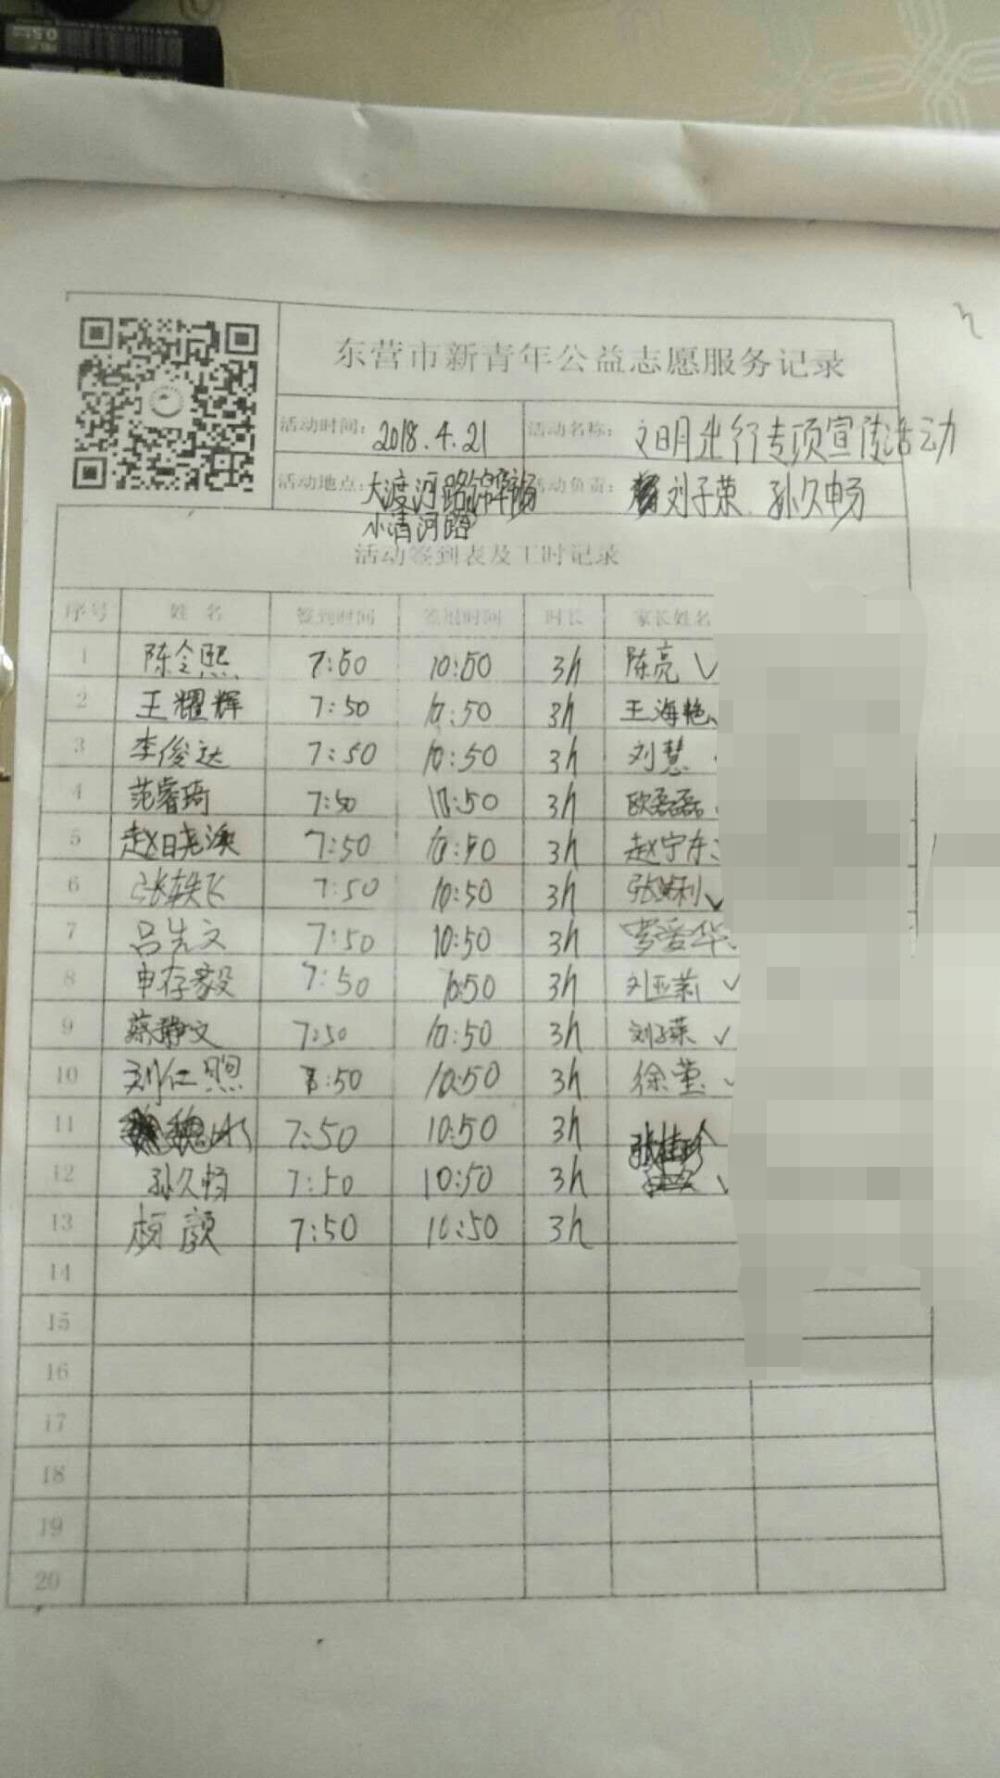 东营市新青年公益志愿服务记录
活动时间: 2018.4.21 活动名称: 文明出行专项宣传活动
活动地点: 大渡河路 活动负责: 刘子荣 孙久畅
小清河路
活动签到表及工时记录
序号 姓名 签到时间 签退时间 时长 家长姓名
1 陈令熙 7:50 10:50 3h 陈亮 ✓
2 王耀辉 7:50 10:50 3h 王海艳
3 李俊达 7:50 10:50 3h 刘慧
4 范睿琦 7:50 10:50 3h 欧磊磊
5 赵日尧澳 7:50 10:50 3h 赵宁东
6 张轶飞 7:50 10:50 3h 张 利 ✓
7 吕先文 7:50 10:50 3h 爱华
8 申存毅 7:50 10:50 3h 刘亚莉 ✓
9 蔡静文 7:50 10:50 3h 刘子荣 ✓
10 刘仁熙 7:50 10:50 3h 徐莹 ✓
11 魏 7:50 10:50 3h 张桂珍
12 孙久畅 7:50 10:50 3h ✓
13 杨颜 7:50 10:50 3h
14
15
16
17
18
19
20